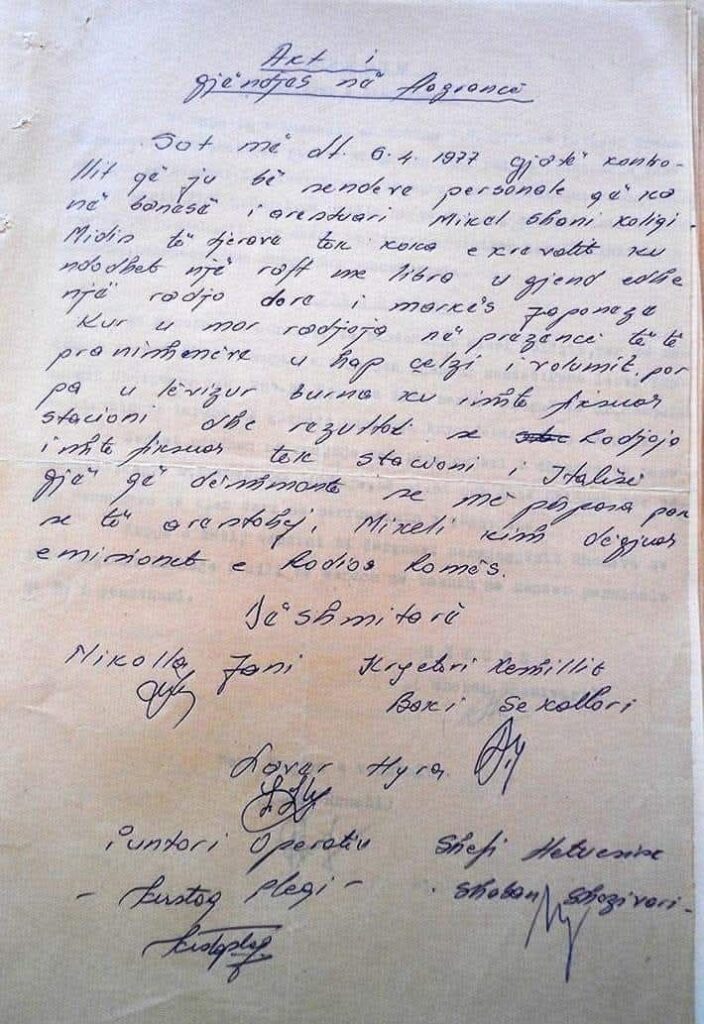 Akt i
gjëndjes në flagrancë
Sot më dt. 6.4.1977 gjatë kontro-
llit që ju bë sendeve personale që ka
në banesë i arestuari Mikel Shani Koligi
Midis të tjerave tek koka e kravatit ku
ndodhet një raft me libra u gjend edhe
një radjo dore i markës Japoneze
Kur u mor radjoja në prezencë të të
pranishmëve u hap çelzi i volumit, por
pa u lëvizur burma ku ishte fiksuar
stacioni dhe rezultoi se Radjoja
ishte fiksuar tek stacioni i Italisë
gjë që dëshmonte se më përpara por
se të arestohej, Mikeli kish dëgjuar
emisionet e Radios Romës.
Dëshmitarë
Nikolla Jani Kryetari Këshillit
Baki Sekallari
Lavar Hyra
Puntori Operativ Shefi Hetuesise
- Kristaq Plegi - Shaban Shazivari -